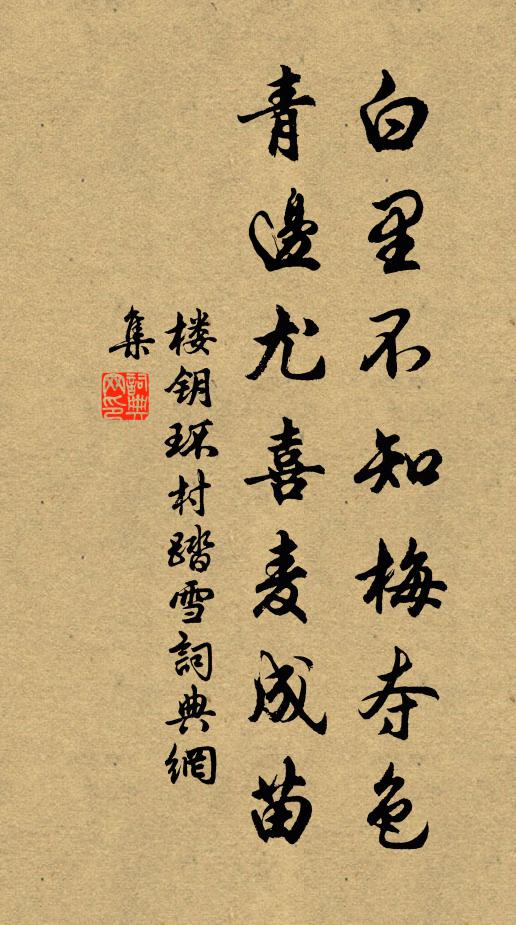 白里不知梅夺色
青邊尤喜麦成苗
楼钥环村踏雪詞典網
集
詞典網印